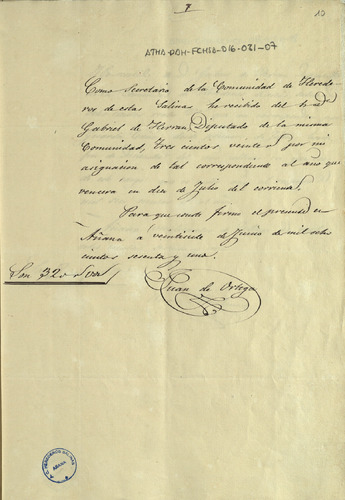 7
10
ATHA-DAH-FCHSA-016-031-07
Como Secretario de la Comunidad de Herede-
ros de estas Salinas he recibido del
Gabriel de Herran, Diputado de la misma
Comunidad, Tres cientos veinte r.s por mi
asignacion de tal correspondiente al año que
vencerá en diez de Julio del corriente.
Para que conste firmo el presente en
Añana á veintiseis de Junio de mil ocho
cientos sesenta y uno.
Son 320 r.s von
Juan de Ortega
AÑANA